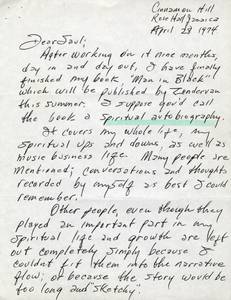 Cinnamon Hill
Rose Hall Jamaica
April 28 1974
Dear Saul:
After working on it nine months,
day in and day out, I have finally
finished my book, "Man in Black"
which will be published by Zondervan
this summer. I suppose you'd call
the book a spiritual autobiography.
It covers my whole life, my
spiritual ups and downs, as well as
music business life. Many people are
mentioned; conversations and thoughts
recorded by myself as best I could
remember.
Other people, even though they
played an important part in my
spiritual life and growth are left
out completely simply because I
couldn't fit them into the narrative
flow; or because the story would be
too long and "sketchy".